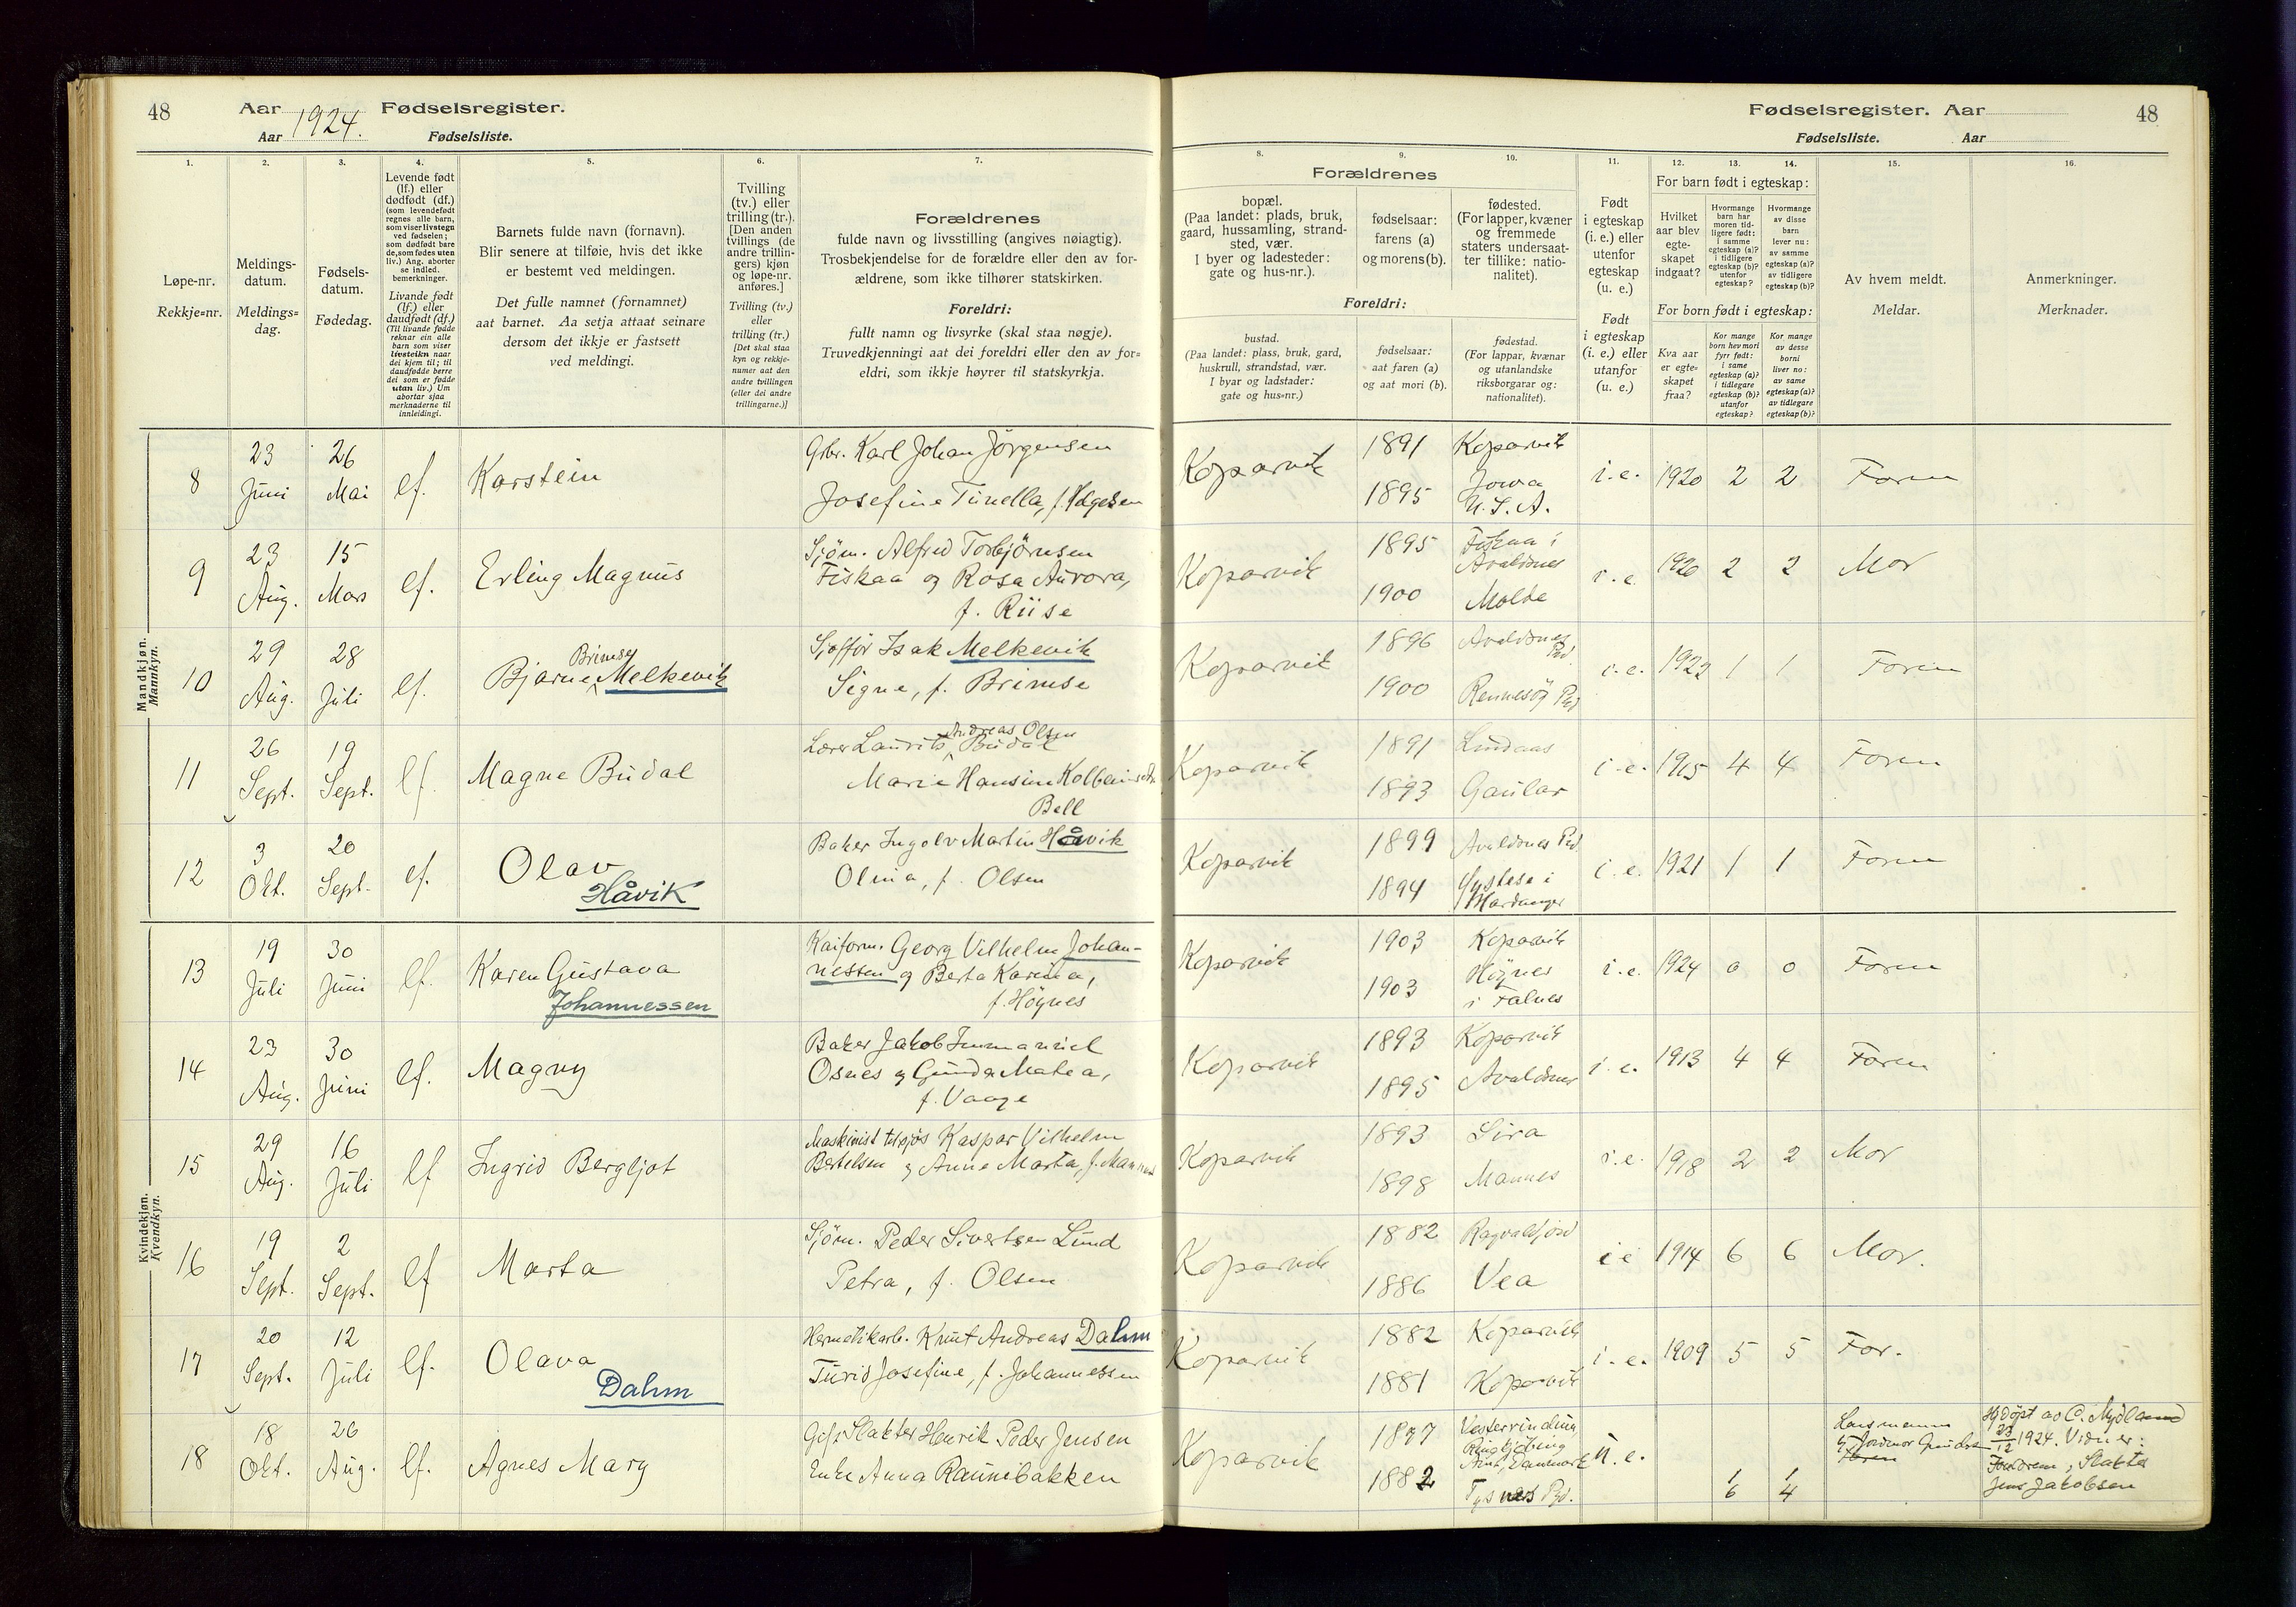 48 Aar 1924. Fødselsregister.
Aar Fødselsliste.
Fødselsregister. Aar 48
Fødselsliste. Aar
1. 2. 3. 4. 5. 6. 7. 8. 9. 10. 11. 12. 13. 14. 15. 16.
Løpe-nr.
Rekkje-nr.
Meldings-
datum.
Meldings-
dag.
Fødsels-
datum.
Fødedag.
Levende født
(lf.) eller
dødfødt (df.)
(som levendefødt
regnes alle barn,
som viser livstegn
ved fødselen;
som dødfødt bare
de, som fødes uten
liv.) Ang. aborter
se indled.
bemerkninger.
Livande født
(lf.) eller
daudfødt (df.)
(Til livande fødde
reknar ein alle
barn som viser
livsteikn naar
dei kjem til; til
daudfødde berre
dei som er fødde
utan liv.) Um
abortar sjaa
merknaderne til
innleidingi.
Barnets fulde navn (fornavn).
Blir senere at tilføie, hvis det ikke
er bestemt ved meldingen.
Det fulle namnet (fornamnet)
aat barnet. Aa setja attaat seinare
dersom det ikkje er fastsett
ved meldingi.
Tvilling
(tv.) eller
trilling (tr.).
[Den anden
tvillings (de
andre trillin-
gers) kjøn
og løpe-nr.
anføres.]
Tvilling (tv.)
eller
trilling (tr.)
[Det skal staa
kyn og rekkje-
numer aat den
andre tvillingen
(eller dei andre
trillingarne.)]
Forældrenes
fulde navn og livsstilling (angives nøiagtig).
Trosbekjendelse for de forældre eller den av for-
ældrene, som ikke tilhører statskirken.
Foreldri:
fullt namn og livsyrke (skal staa nøgje).
Truvedkjenningi aat dei foreldri eller den av for-
eldri, som ikkje høyrer til statskyrkja.
Forældrenes
bopæl.
(Paa landet: plads, bruk,
gaard, hussamling, strand-
sted, vær.
I byer og ladesteder:
gate og hus-nr.).
fødselsaar:
farens (a)
og morens (b).
fødested.
(For lapper, kvæner
og fremmede
staters undersaat-
ter tillike: natio-
nalitet).
Foreldri:
bustad.
(Paa landet: plass, bruk, gard,
huskrull, strandstad, vær.
I byar og ladstader:
gate og hus-nr.)
fødselsaar:
aat faren (a)
og aat mori (b).
fødestad.
(For lappar, kvænar
og utanlandske
riksborgarar og:
nationalitet).
Født
i egteskap
(i. e.) eller
utenfor
egteskap
(u. e.)
Født
i egteskap
(i. e.) eller
utanfor
(u. e.)
For barn født i egteskap:
Hvilket
aar blev
egte-
skapet
indgaat?
Hvormange
barn har
moren tid-
ligere født:
i samme
egteskap (a)?
i tidligere
egteskap (b)?
utenfor
egteskap?
Hvormange
av disse
barn
lever nu:
av samme
egteskap (a)?
av tidligere
egteskap (b)?
For born født i egteskap:
Kva aar
er egte-
skapet
fraa?
Kor mange
born hev mori
fyrr født:
i same
egteskap (a)?
i tidlegare
egteskap (b)?
utanfor
egteskap?
Kor mange
av desse
borni
liver no:
av same
egteskap (a)?
av tidlegare
egteskap (b)?
Av hvem meldt.
Meldar.
Anmerkninger.
Merknader.
Mandkjøn.
Mannkyn.
8 23 Juni 26 Mai lf. Karstein Grbr. Karl Johan Jörgensen
Josefine Tunella, f. Helgesen Koparvik 1891 Koparvik
1895 Jowa U.S.A. i.e. 1920 2 2 Faren
9 23 Aug. 15 Mars lf. Erling Magnus Sjöm. Alfred Torbjörnsen
Fiskaa og Rosa Aurora,
f. Riise Koparvik 1895 Fiskaa i Avaldsnes
1900 Molde i.e. 1920 2 2 Mor
10 29 Aug. 28 Juli lf. Bjarne Brimse Melkevik Sjofför Isak Melkevik
Signe, f. Brimse Koparvik 1896 Avaldsnes Pd.
1900 Rennesöy Pd i.e. 1922 1 1 Faren
11 26 Sept. 19 Sept. lf. Magne Budal Lærer Laurits Andreas Olsen Budal
Marie Hansine Kolbeinsdtr.
Bell Koparvik 1891 Lindaas
1893 Gaular i.e. 1915 4 4 Faren
12 3 Okt. 20 Sept. lf. Olav
Håvik Baker Ingolv Martin Håvik
Olina, f. Olsen Koparvik 1899 Avaldsnes Pd
1894 Øystese i Hardanger i.e. 1921 1 1 Faren
Kvindekjøn.
Kvendkyn.
13 19 Juli 30 Juni lf. Karen Gustava
Johannessen Kaiform. Georg Vilhelm Johan-
nessen og Berta Karina,
f. Högnes Koparvik 1903 Koparvik
1903 Högnes i Falnes i.e. 1924 0 0 Faren
14 23 Aug. 30 Juni lf. Magny Baker Jakob Immanuel
Osnes og Gunda Matea,
f. Vaage Koparvik 1893 Koparvik
1895 Avaldsnes i.e. 1913 4 4 Faren
15 29 Aug. 16 Juli lf Ingrid Bergljot Maskinist tilsjös Kaspar Vilhelm
Bertelsen og Anna Marta, f. Mannes Koparvik 1893 Sira
1898 Mannes i.e. 1918 2 2 Mor
16 19 Sept. 2 Sept. lf Marta Sjöm. Peder Sivertsen Lund
Petra, f. Olsen Koparvik 1882 Ragvaldsjord
1886 Vea i e 1914 6 6 Mor.
17 20 Sept. 12 Juli lf. Olava
Dahm Hermetikarb. Knut Andreas Dahm
Turid Josefine, f. Johannessen Koparvik 1882 Koparvik
1881 Koparvik i.e. 1909 5 5 Far.
18 18 Okt. 26 Aug. lf. Agnes Mary Gift Slakter Henrik Peder Jensen
Enke Anna Raunibakken Koparvik 1877
Ringkjöbing Amt, Danmark
1882 Tysnes Pd. u.e. 1 1
6 4 Lensmann
og Jordmor
Faren Hjdöpt av C. Mydland
23/12 1924. Vidner:
Fordrem, Slakter
Jens Jakobsen